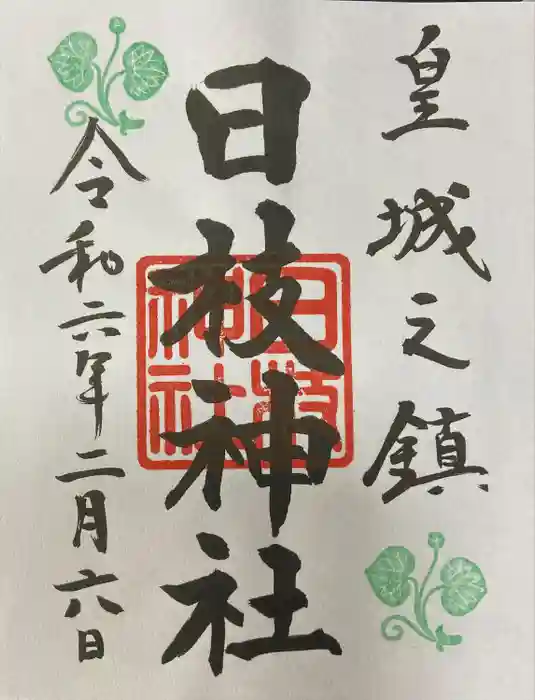 皇城之鎮
日枝神社
日枝神社
令和六年二月六日